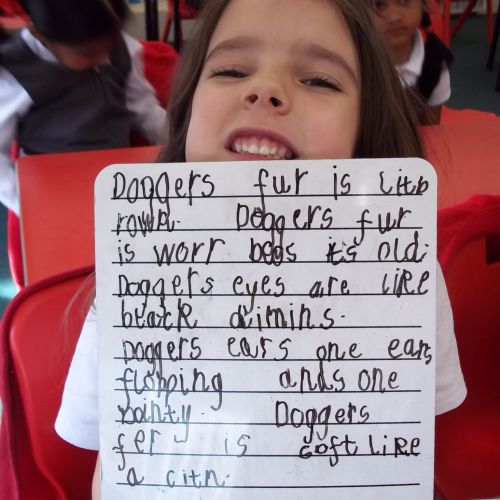 Doggers fur is litb
rown. Doggers fur
is worr becos it's old.
Doggers eyes are like
black dimins.
Doggers ears one ears
flopping ands one
pointy. Doggers
fer is soft like
a citn.